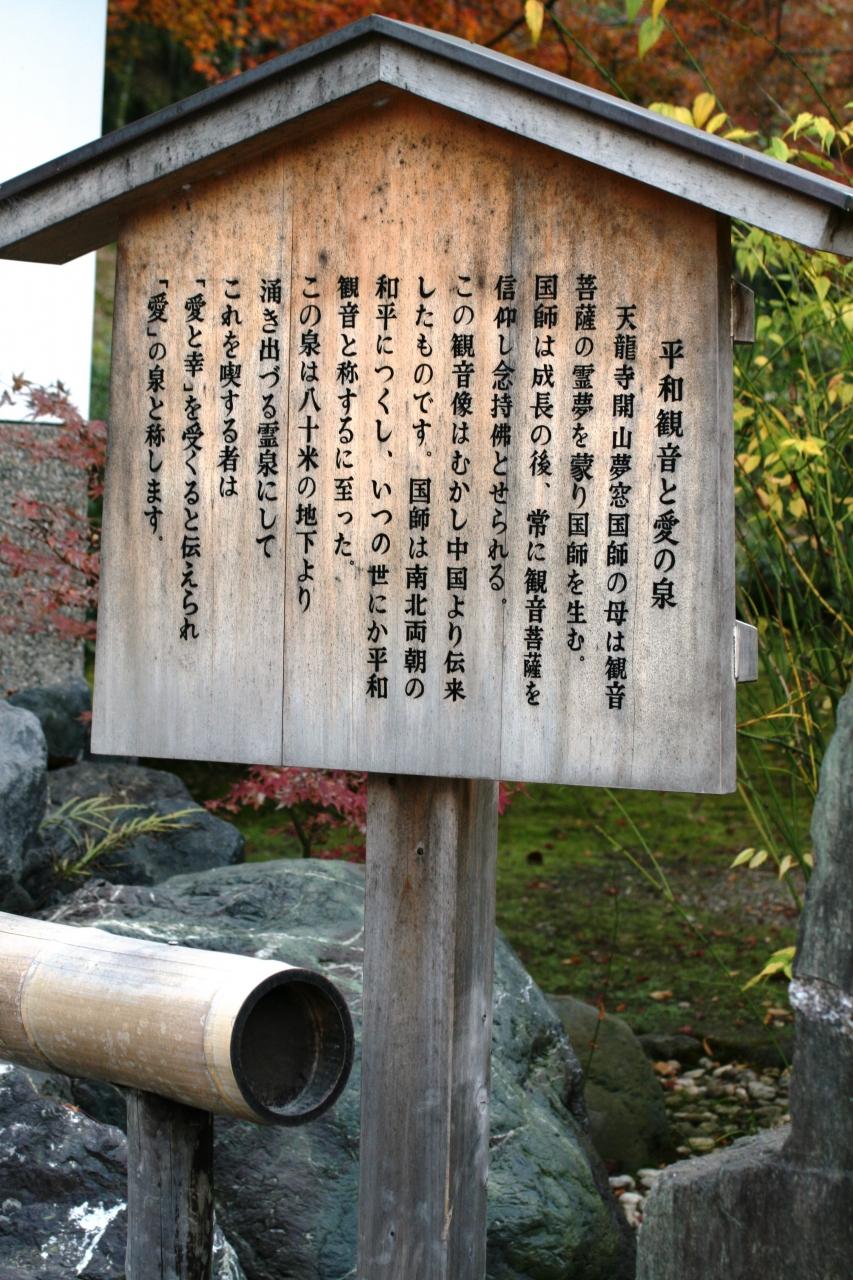 平和観音と愛の泉
天龍寺開山夢窓国師の母は観音
菩薩の霊夢を蒙り国師を生む。
国師は成長の後、常に観音菩薩を
信仰し念持佛とせられる。
この観音像はむかし中国より伝来
したものです。国師は南北両朝の
和平につくし、いつの世にか平和
観音と称するに至った。
この泉は八十米の地下より
涌き出づる霊泉にして
これを喫する者は
「愛と幸」を受くると伝えられ
「愛」の泉と称します。